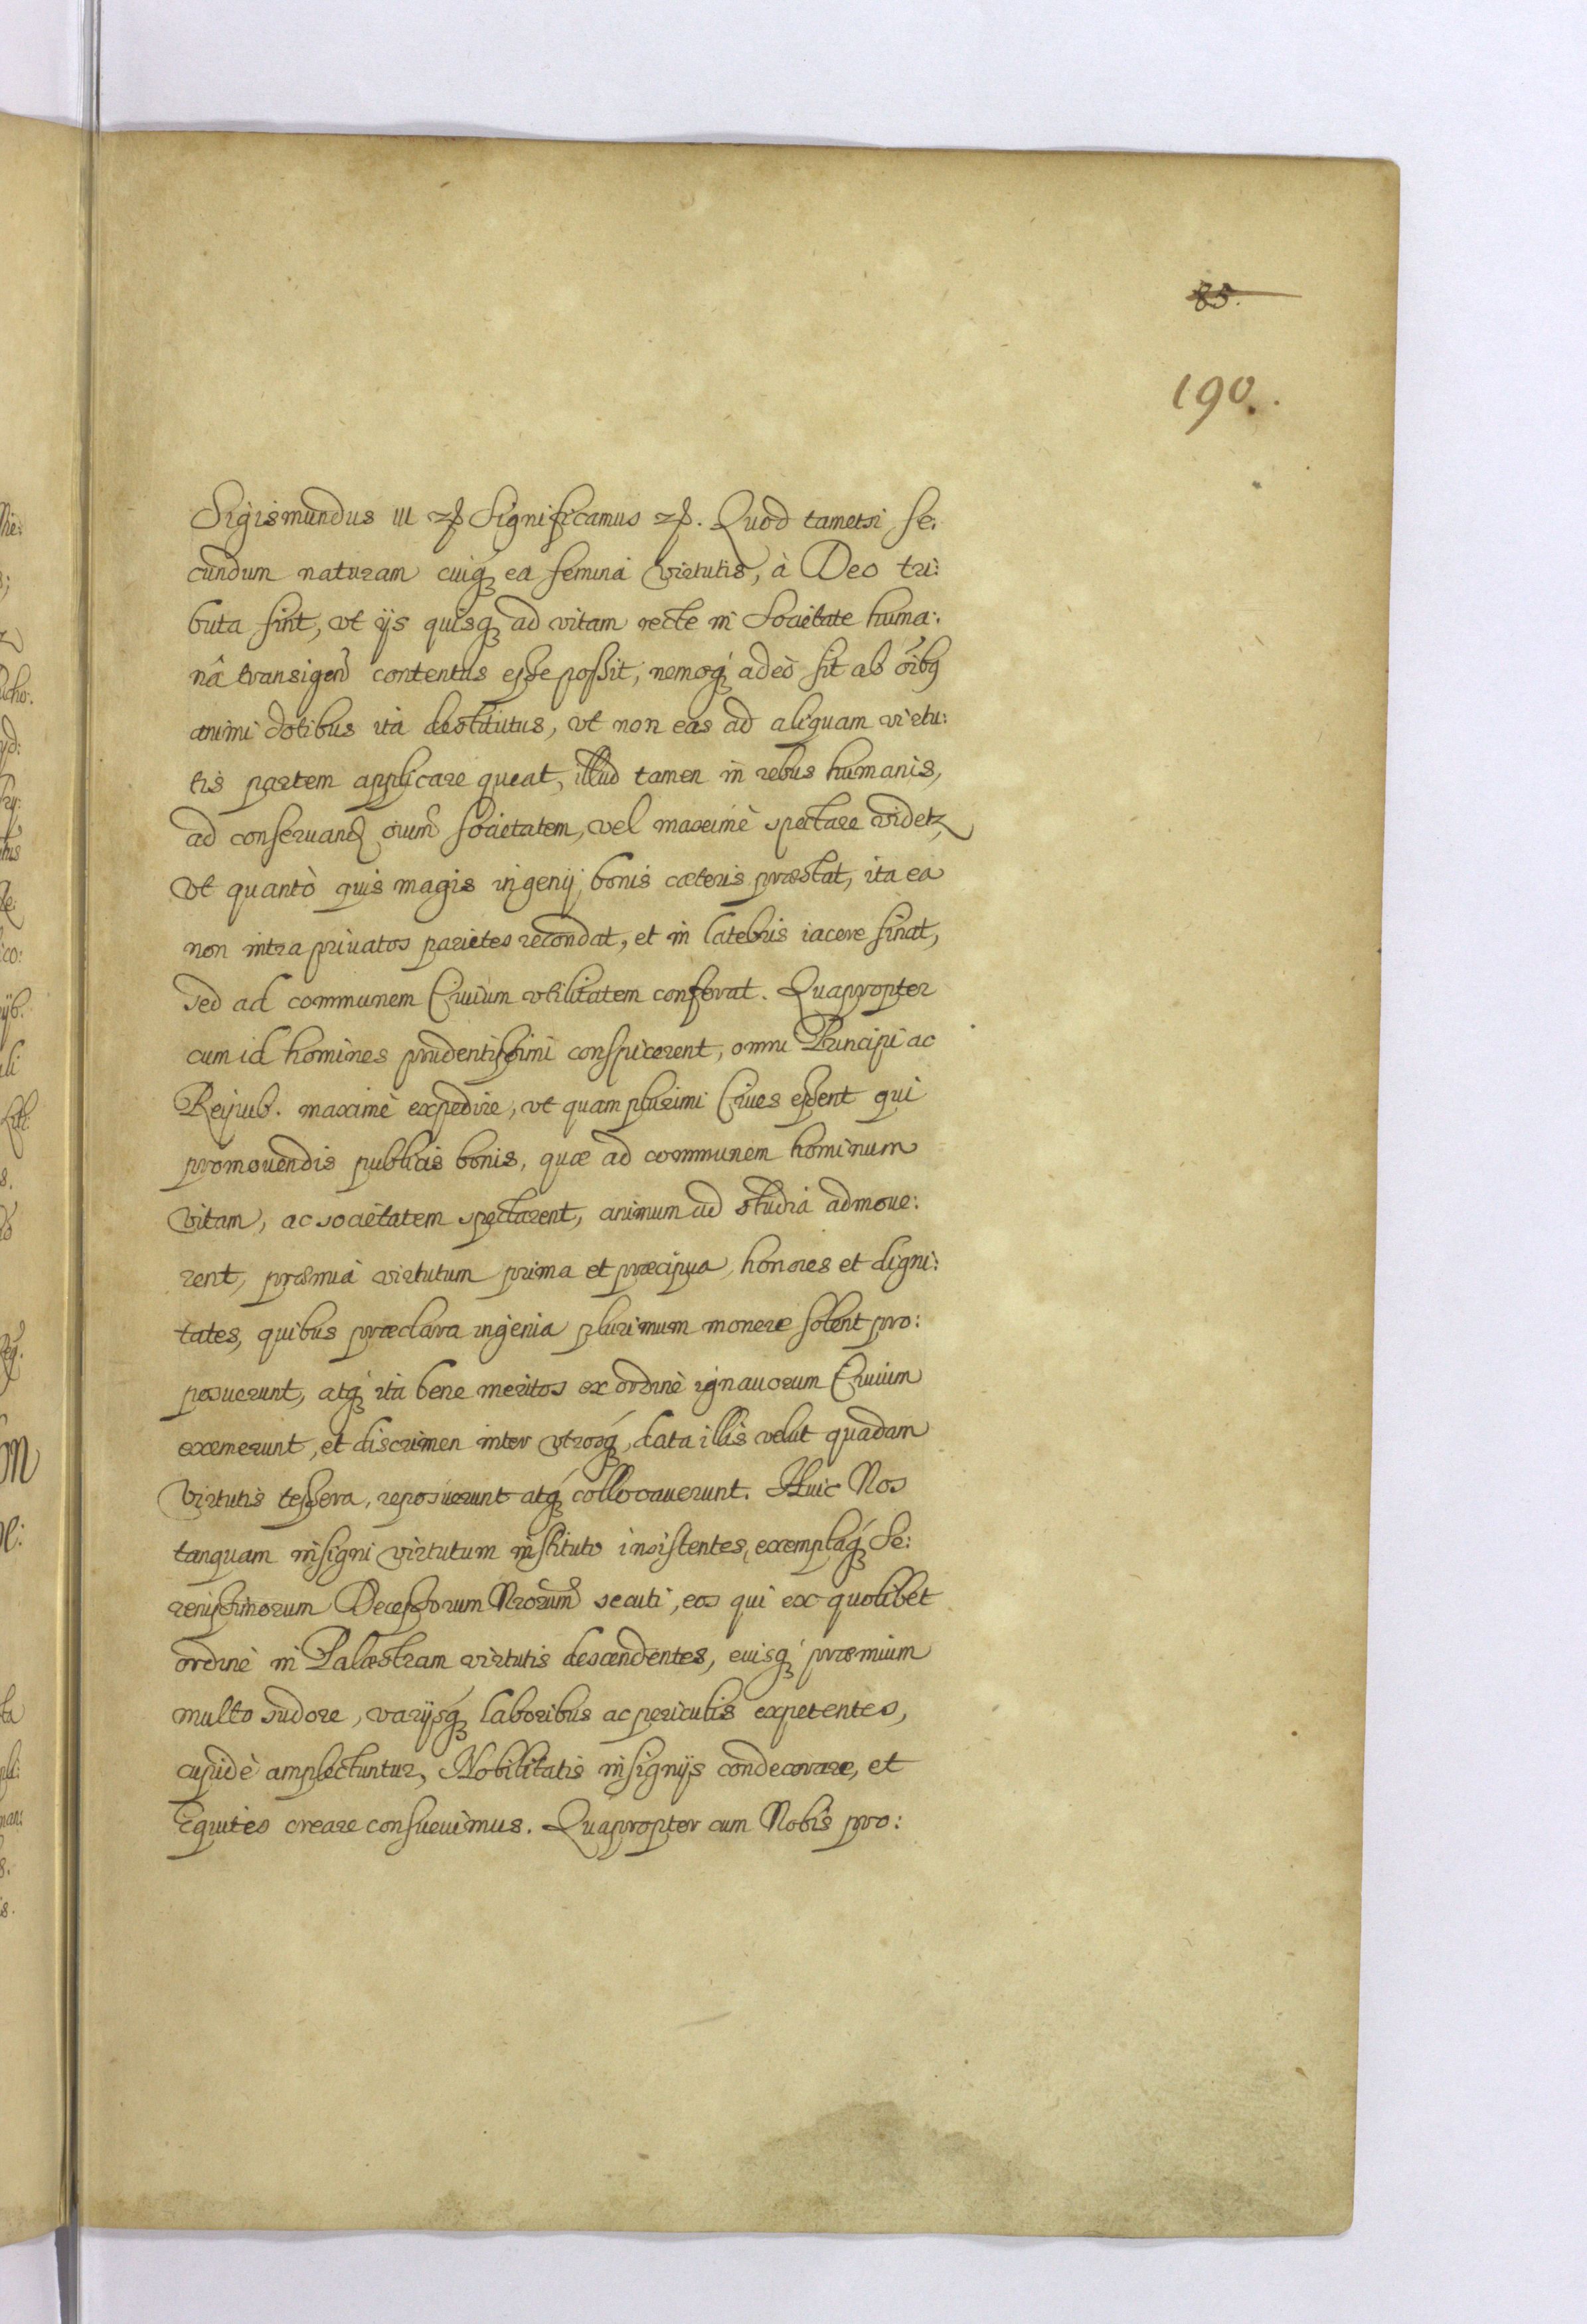 85.
190.
Sigismundus III etc Significamus etc. Quod tametsi se:
cundum naturam cuiq́ʒ ea semina virtutis, à Deo tri:
buta sint, vt ijs quisqʒ ad vitam recte in Societate huma:
nâ transigend contentus esse possit, nemoq́ʒ adeò sit ab oibʒ
animi dotibus ita destitutus, vt non eas ad aliquam virtu:
tis partem applicare queat, illud tamen in rebus humanis,
ad conseruand oium societatem, vel maximè spectare videtʒ
Vt quantò quis magis ingenij bonis cæteris præstat, ita ea
non intra priuatos parietes recondat, et in latebris iacere sinat,
sed ad communem Ciuium vtilitatem conferat. Quapropter
cum id homines prudentissimi conspicerent, omni Principi ac
Reipub. maximè expedire, vt quam plurimi Ciues essent qui
promouendis publicis bonis, quæ ad communem hominum
vitam, ac societatem spectarent, animum ad studia admoue:
rent, præmia virtutum prima et præcipua, honores et digni:
tates, quibus præclara ingenia plurimum monere solent pro:
posuerunt, atq́ʒ ita bene meritos ex ordine ignauorum Ciuium
exemerunt, et discrimen inter vtrosq́ʒ, data illis velut quadam
Virtutis tessera, reposuerunt atq́ʒ collocauerunt. Huic Nos
tanquam insigni virtutum instituto insistentes, exemplaq́ʒ Se:
renissimorum Decessorum Nrorum secuti, eos qui ex quolibet
ordine in Palæstram virtutis descendentes, euisq́ʒ præmium
multo sudore, varijsq́ʒ laboribus ac periculis expetentes,
cupidè amplectuntur, Nobilitatis insignijs condecorare, et
Equites creare consueuimus. Quapropter cum Nobis pro: